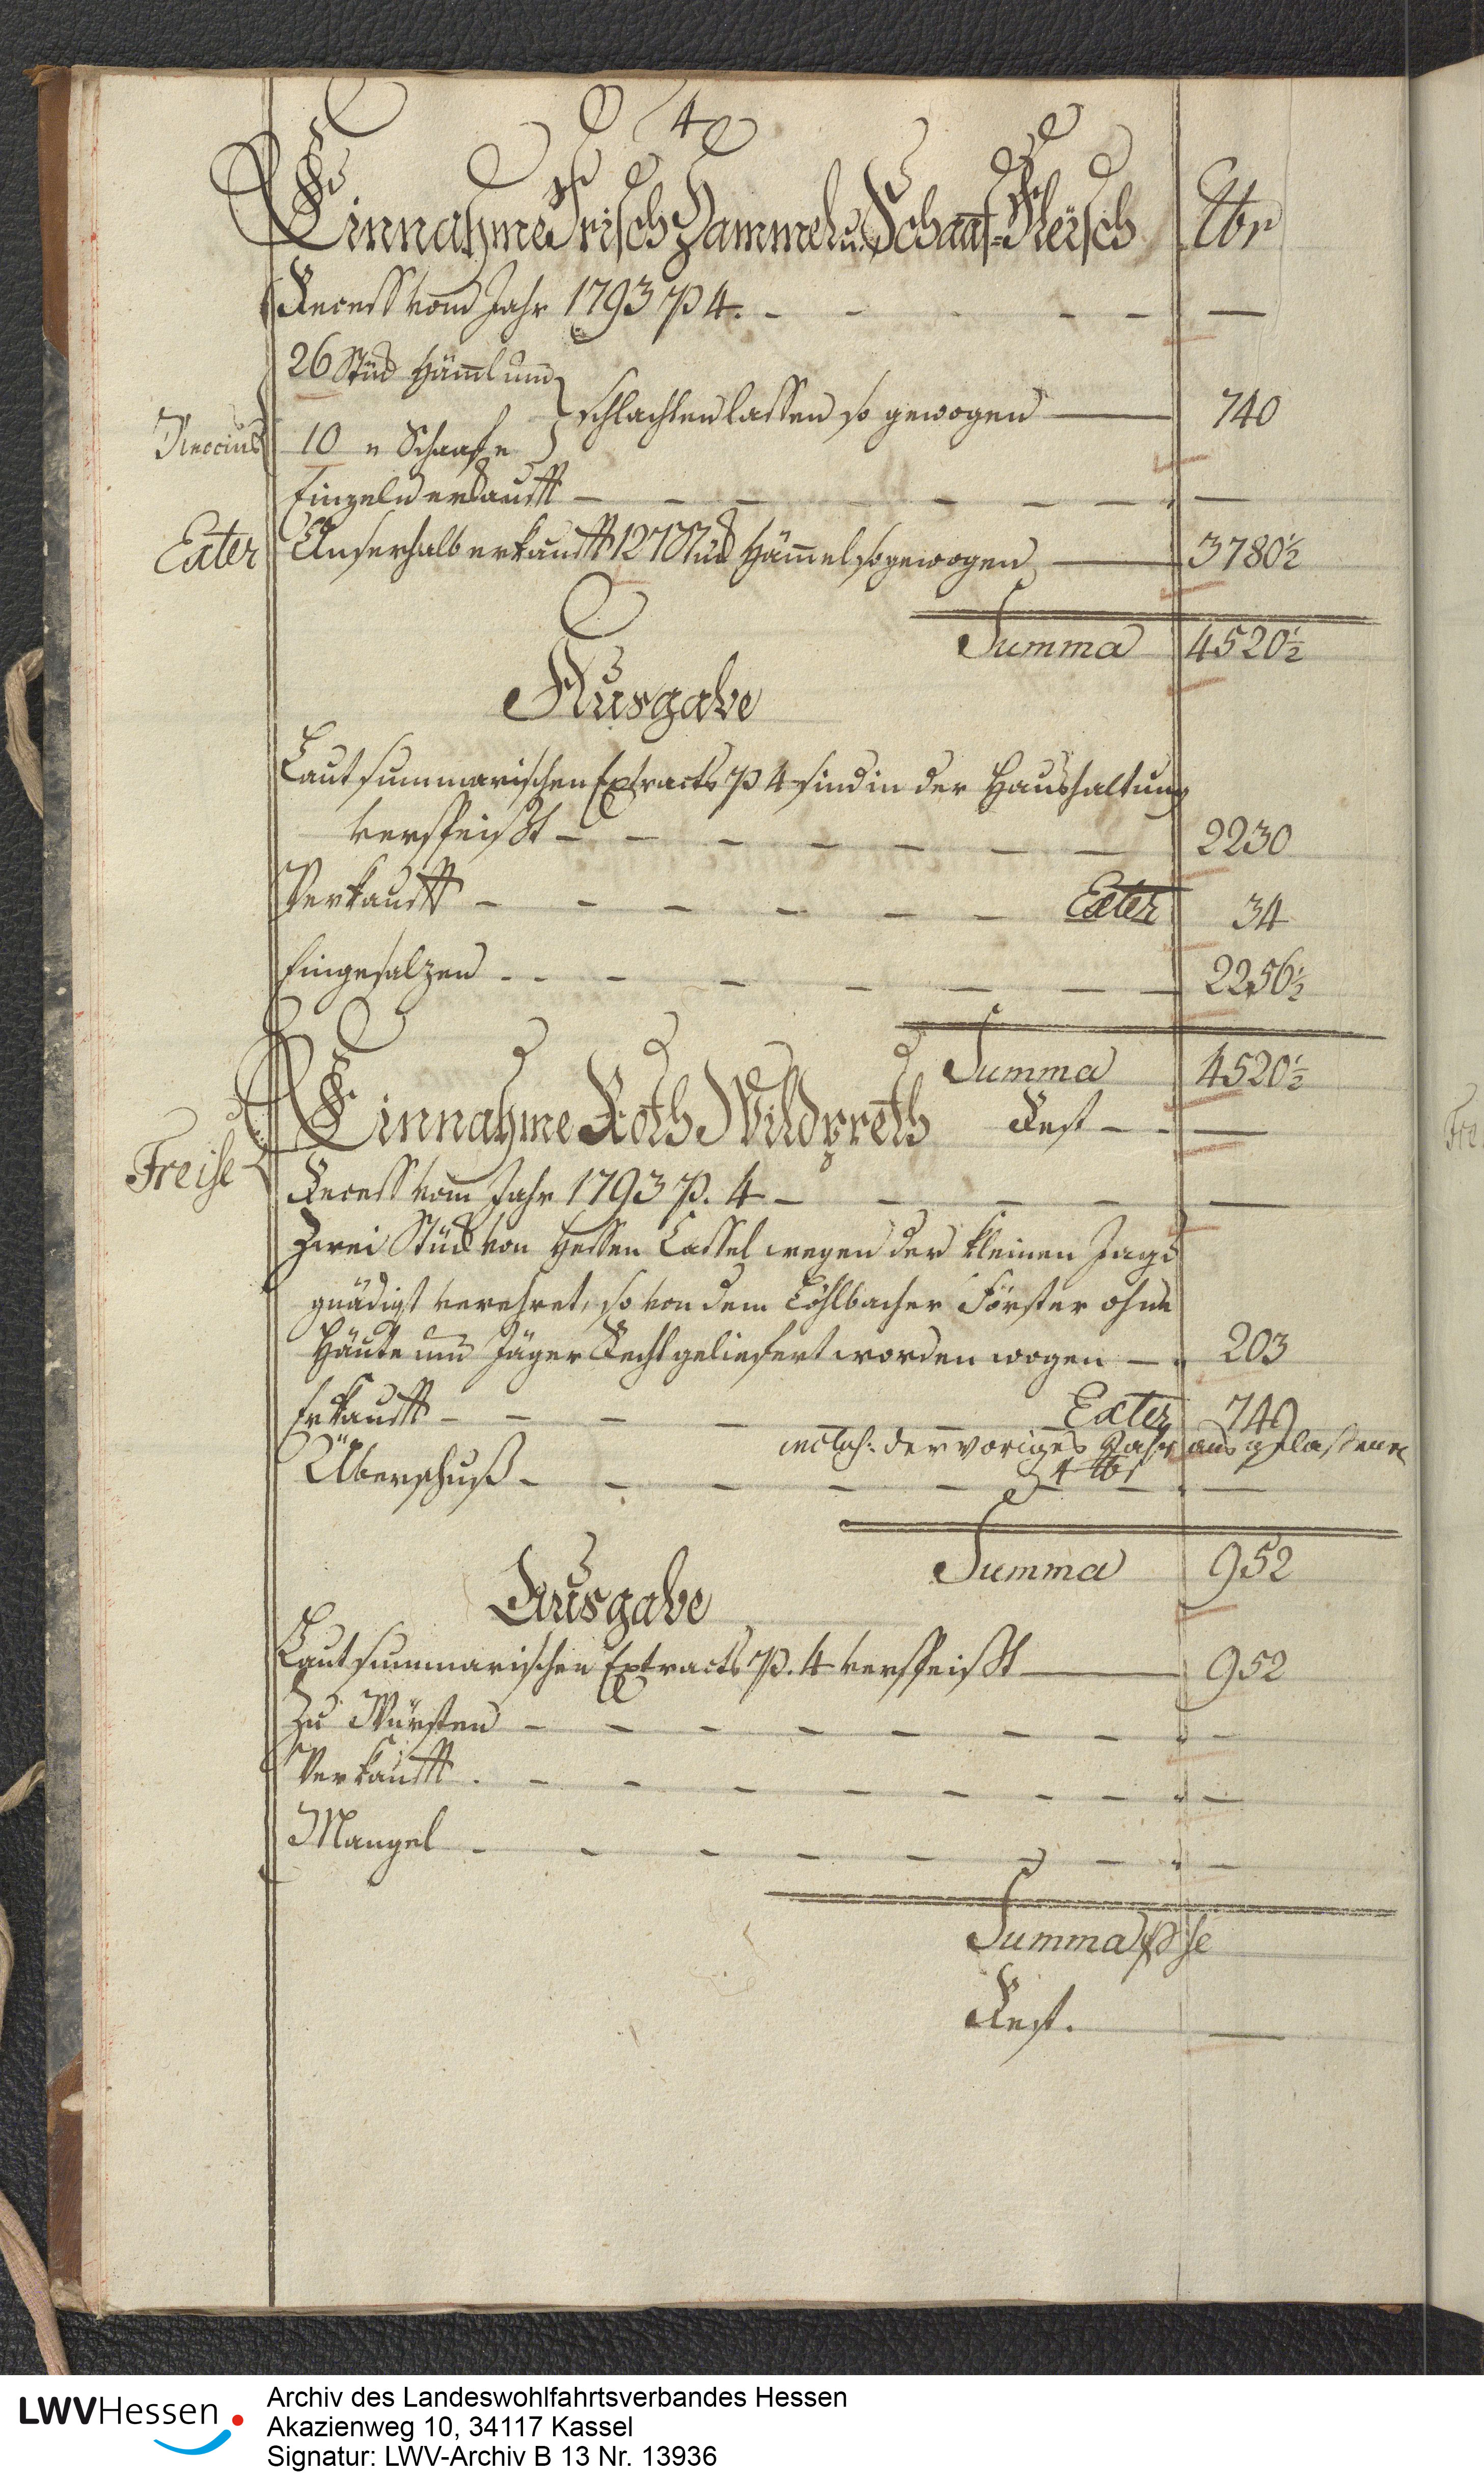 4
Einnahme Frisch Hammel u. Schaaf-Fleisch lbr
Recess vom Jahr 1793 p 4. - - - - - —
26 Stück Hämel und
schlachten lassen so gewogen — 740
Reccius 10 " Schaafe
Einzeln erkaufft - - - - - - - —
Exter Auserhalb erkaufft 127 Stück Hämel so gewogen — 3780½
Summa 4520½
Ausgabe
Laut summarischen Extracts p 4 sind in der Haushaltung
verspeißt - - - - - - 2230
Verkaufft - - - - - - Exter 34
Eingesalzen - - - - - - - 2256½
Summa 4520½
Einnahme Roth Wildpreth Rest - - —
Freise
Recess vom Jahr 1793 p. 4 - - - - - —
Zwei Stück von Hessen Cassel wegen der kleinen Jagd
gnädigst verehret, so von dem Löhlbacher Förster ohne
Häute und Jäger Recht geliefert worden wogen — 203
Erkaufft - - - - - Exter 749
inclus: der voriges Jahr ausgelaßene
4 lbr
Überschuß - - - - - - —
Summa 952
Ausgabe
Laut summarischen Extracts p. 4 verspeißt — 952
Zu Würsten - - - - - - - —
Verkaufft - - - - - - - —
Mangel - - - - - - - —
Summa p se
Rest. —
Fre
LWVHessen
Archiv des Landeswohlfahrtsverbandes Hessen
Akazienweg 10, 34117 Kassel
Signatur: LWV-Archiv B 13 Nr. 13936